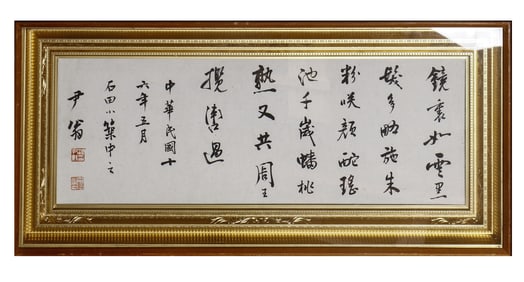 鏡裏如雲黑
髮多助施朱
粉咲顏酡瑤
池千歲蟠桃
熟又共周王
攬轡過
中華民國十
六年五月
石田小築中之
尹翁